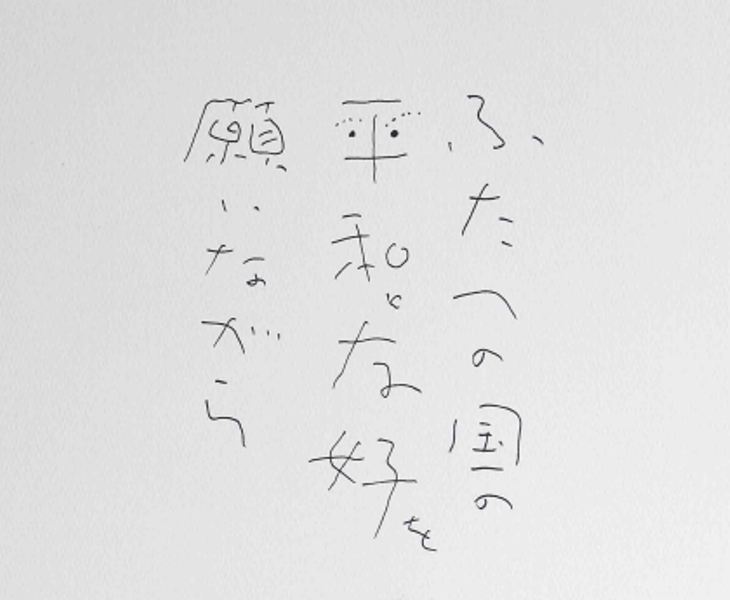 ふたつの国の
平和とな好を
願いながら